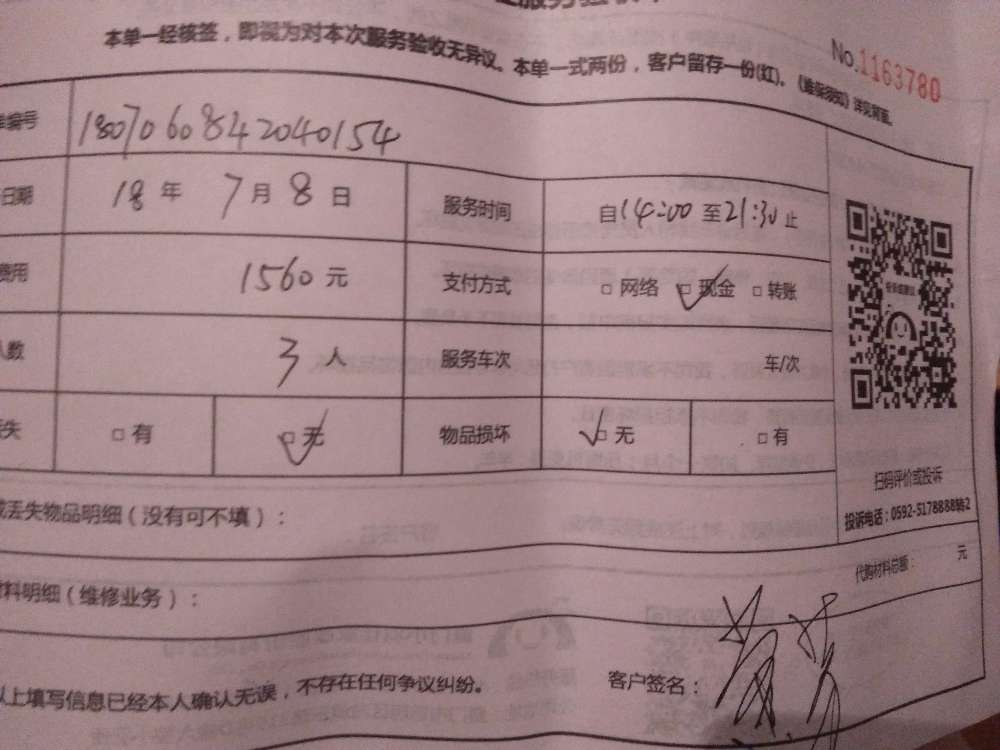 服务验收单
本单一经核签，即视为对本次服务验收无异议。本单一式两份，客户留存一份(红)。《维保须知》详见背面。
No.1163780
编号 1807060842040154
日期 18年 7月8日 服务时间 自14:00至21:30止
费用 1560元 支付方式 □网络 □现金 □转账
人数 3人 服务车次 车/次
失 □有 □无 物品损坏 □无 □有
扫码评价或投诉
投诉电话：0592-5178888转2
丢失物品明细（没有可不填）：
代购材料总额： 元
料明细（维修业务）：
以上填写信息已经本人确认无误，不存在任何争议纠纷。
客户签名：